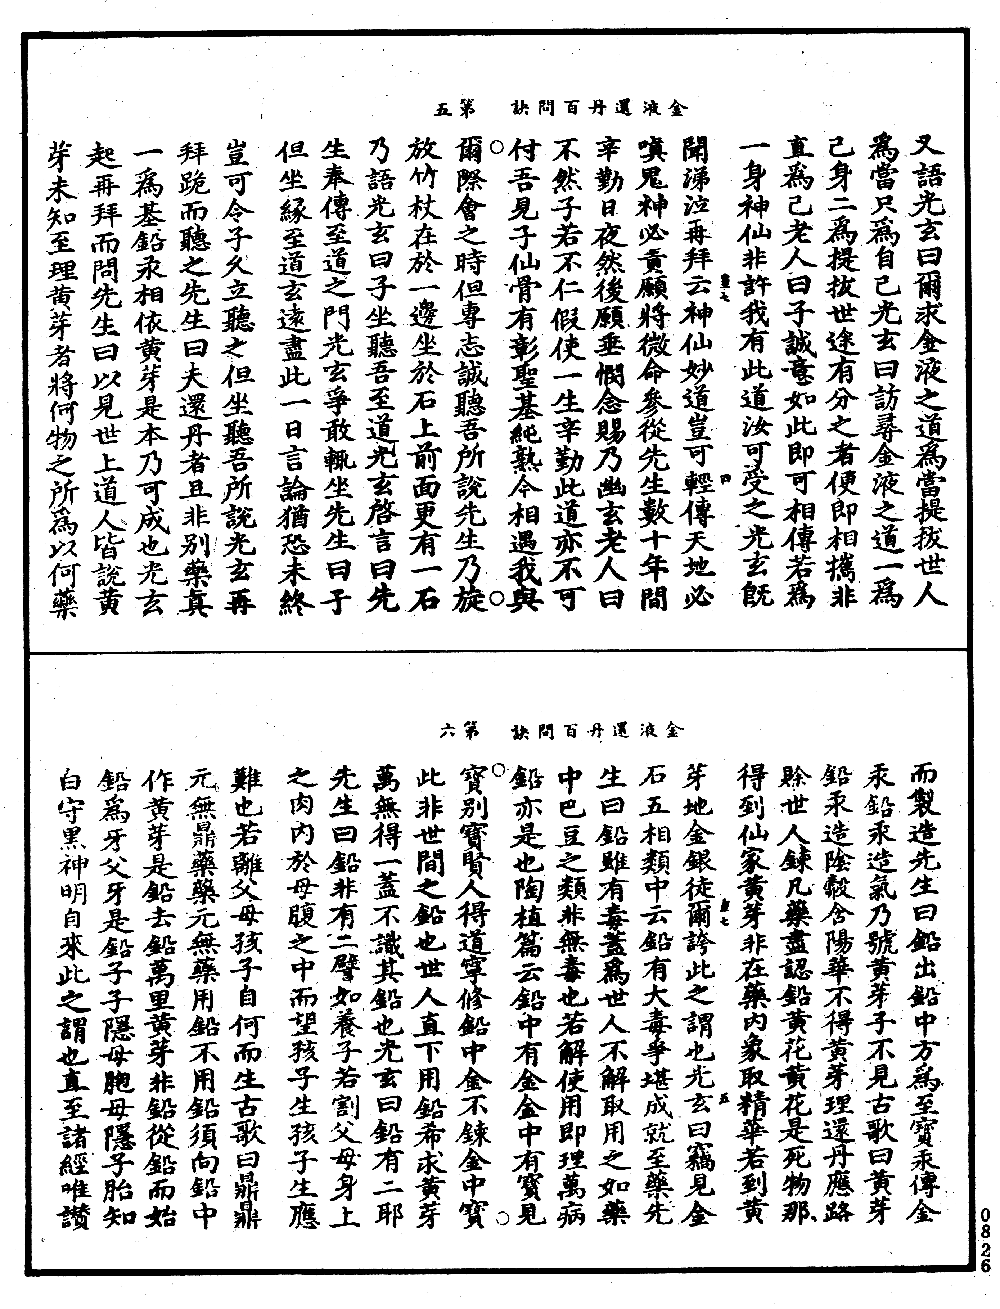 金液還丹百問訣　第五
又語光玄曰爾求金液之道為當提拔世人
為當只為自己光玄曰訪尋金液之道一為
己身二為提拔世途有分之者便即相攜非
直為己老人曰子誠意如此即可相傳若為
一身神仙非許我有此道汝可受之光玄既
聞涕泣再拜云神仙妙道豈可輕傳天地必
嗔鬼神必責願將微命參從先生數十年間
辛勤日夜然後願垂憫念賜乃幽玄老人曰
不然子若不仁假使一生辛勤此道亦不可
付吾見子仙骨有彰聖基純熟今相遇我與
爾際會之時但專志誠聽吾所說先生乃旋
放竹杖在於一邊坐於石上前面更有一石
乃語光玄曰子坐聽吾至道光玄啓言曰先
生奉傳至道之門光玄爭敢輒坐先生曰子
但坐緣至道玄遠盡此一日言論猶恐未終
豈可令子久立聽之但坐聽吾所說光玄再
拜跪而聽之先生曰夫還丹者且非別藥真
一為基鉛汞相依黃芽是本乃可成也光玄
起再拜而問先生曰以見世上道人皆說黃
芽未知至理黃芽者將何物之所為以何藥
金液還丹百問訣　第六
而製造先生曰鉛出鉛中方為至寶汞傳金
汞鉛汞造氣乃號黃芽子不見古歌曰黃芽
鉛汞造陰轂含陽華不得黃芽理還丹應路
賒世人鍊凡藥盡認鉛黃花黃花是死物那
得到仙家黃芽非在藥內象取精華若到黃
芽地金銀徒爾誇此之謂也光玄曰竊見金
石五相類中云鉛有大毒爭堪成就至藥先
生曰鉛雖有毒蓋為世人不解取用之如藥
中巴豆之類非無毒也若解使用即理萬病
鉛亦是也陶植篇云鉛中有金金中有寶見
寶別寶賢人得道寧修鉛中金不鍊金中寶
此非世間之鉛也世人直下用鉛希求黃芽
萬無得一蓋不識其鉛也光玄曰鉛有二耶
先生曰鉛非有二譬如養子若割父母身上
之肉內於母腹之中而望孩子生孩子生應
難也若離父母孩子自何而生古歌曰鼎鼎
元無鼎藥藥元無藥用鉛不用鉛須向鉛中
作黃芽是鉛去鉛萬里黃芽非鉛從鉛而始
鉛為牙父牙是鉛子子隱母胞母隱子胎知
白守黑神明自來此之謂也直至諸經唯讚
0826